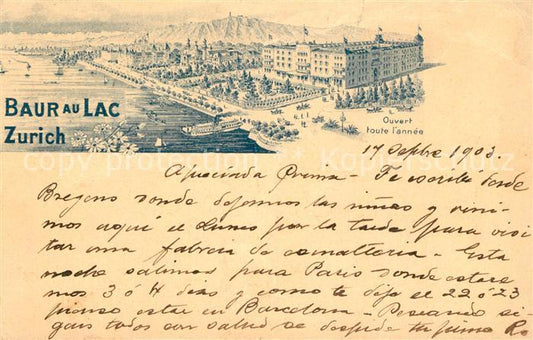 BAUR AU LAC
Zurich
Ouvert
toute l'année
17 Sepbre 1903.
Apreciada Prima - Te escribí desde
Bregens donde dejamos las niñas y vini-
mos aquí el Lunes por la tarde para visi
tar una fabrica de esmalteria - Esta
noche salimos para Paris donde estare
mos 3 ó 4 dias y como te dije el 22 ó 23
pienso estar en Barcelona - Deseando si-
gais todos con salud se despide tu primo